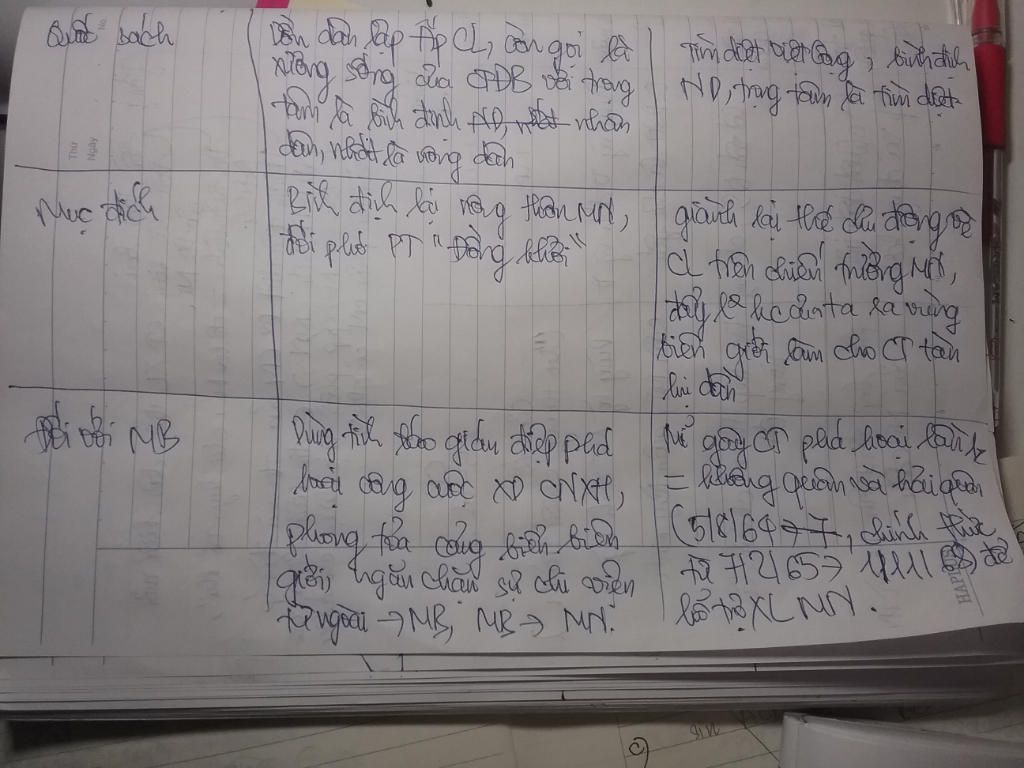 Quốc sách
Dồn dân lập ấp CL, còn gọi là
xương sống của CTĐB với trọng
tâm là bình định ND, nhất nhân
dân, nhất là nông dân
tìm diệt việt cộng, bình định
ND, trọng tâm là tìm diệt
Mục đích
Bình định lại nông thôn MN,
đối phó PT "Đồng khởi"
giành lại thế chủ động về
CL trên chiến trường MN,
đẩy l² của ta ra vùng
biên giới làm cho CT tàn
lụi dần
Đối với MB
Dùng tình báo gián điệp phá
hoại công cuộc XD CNXH,
phong tỏa cảng biển biên
giới, ngăn chặn sự chi viện
từ ngoài → MB, MB → MN.
Mĩ gây CT phá hoại lần
= không quân và hải quân
(5/8/64 → 7, chính thức
từ 7/2/65 → 1/11/68) để
hỗ trợ XL MN.
Thứ
Ngày
No.
c)